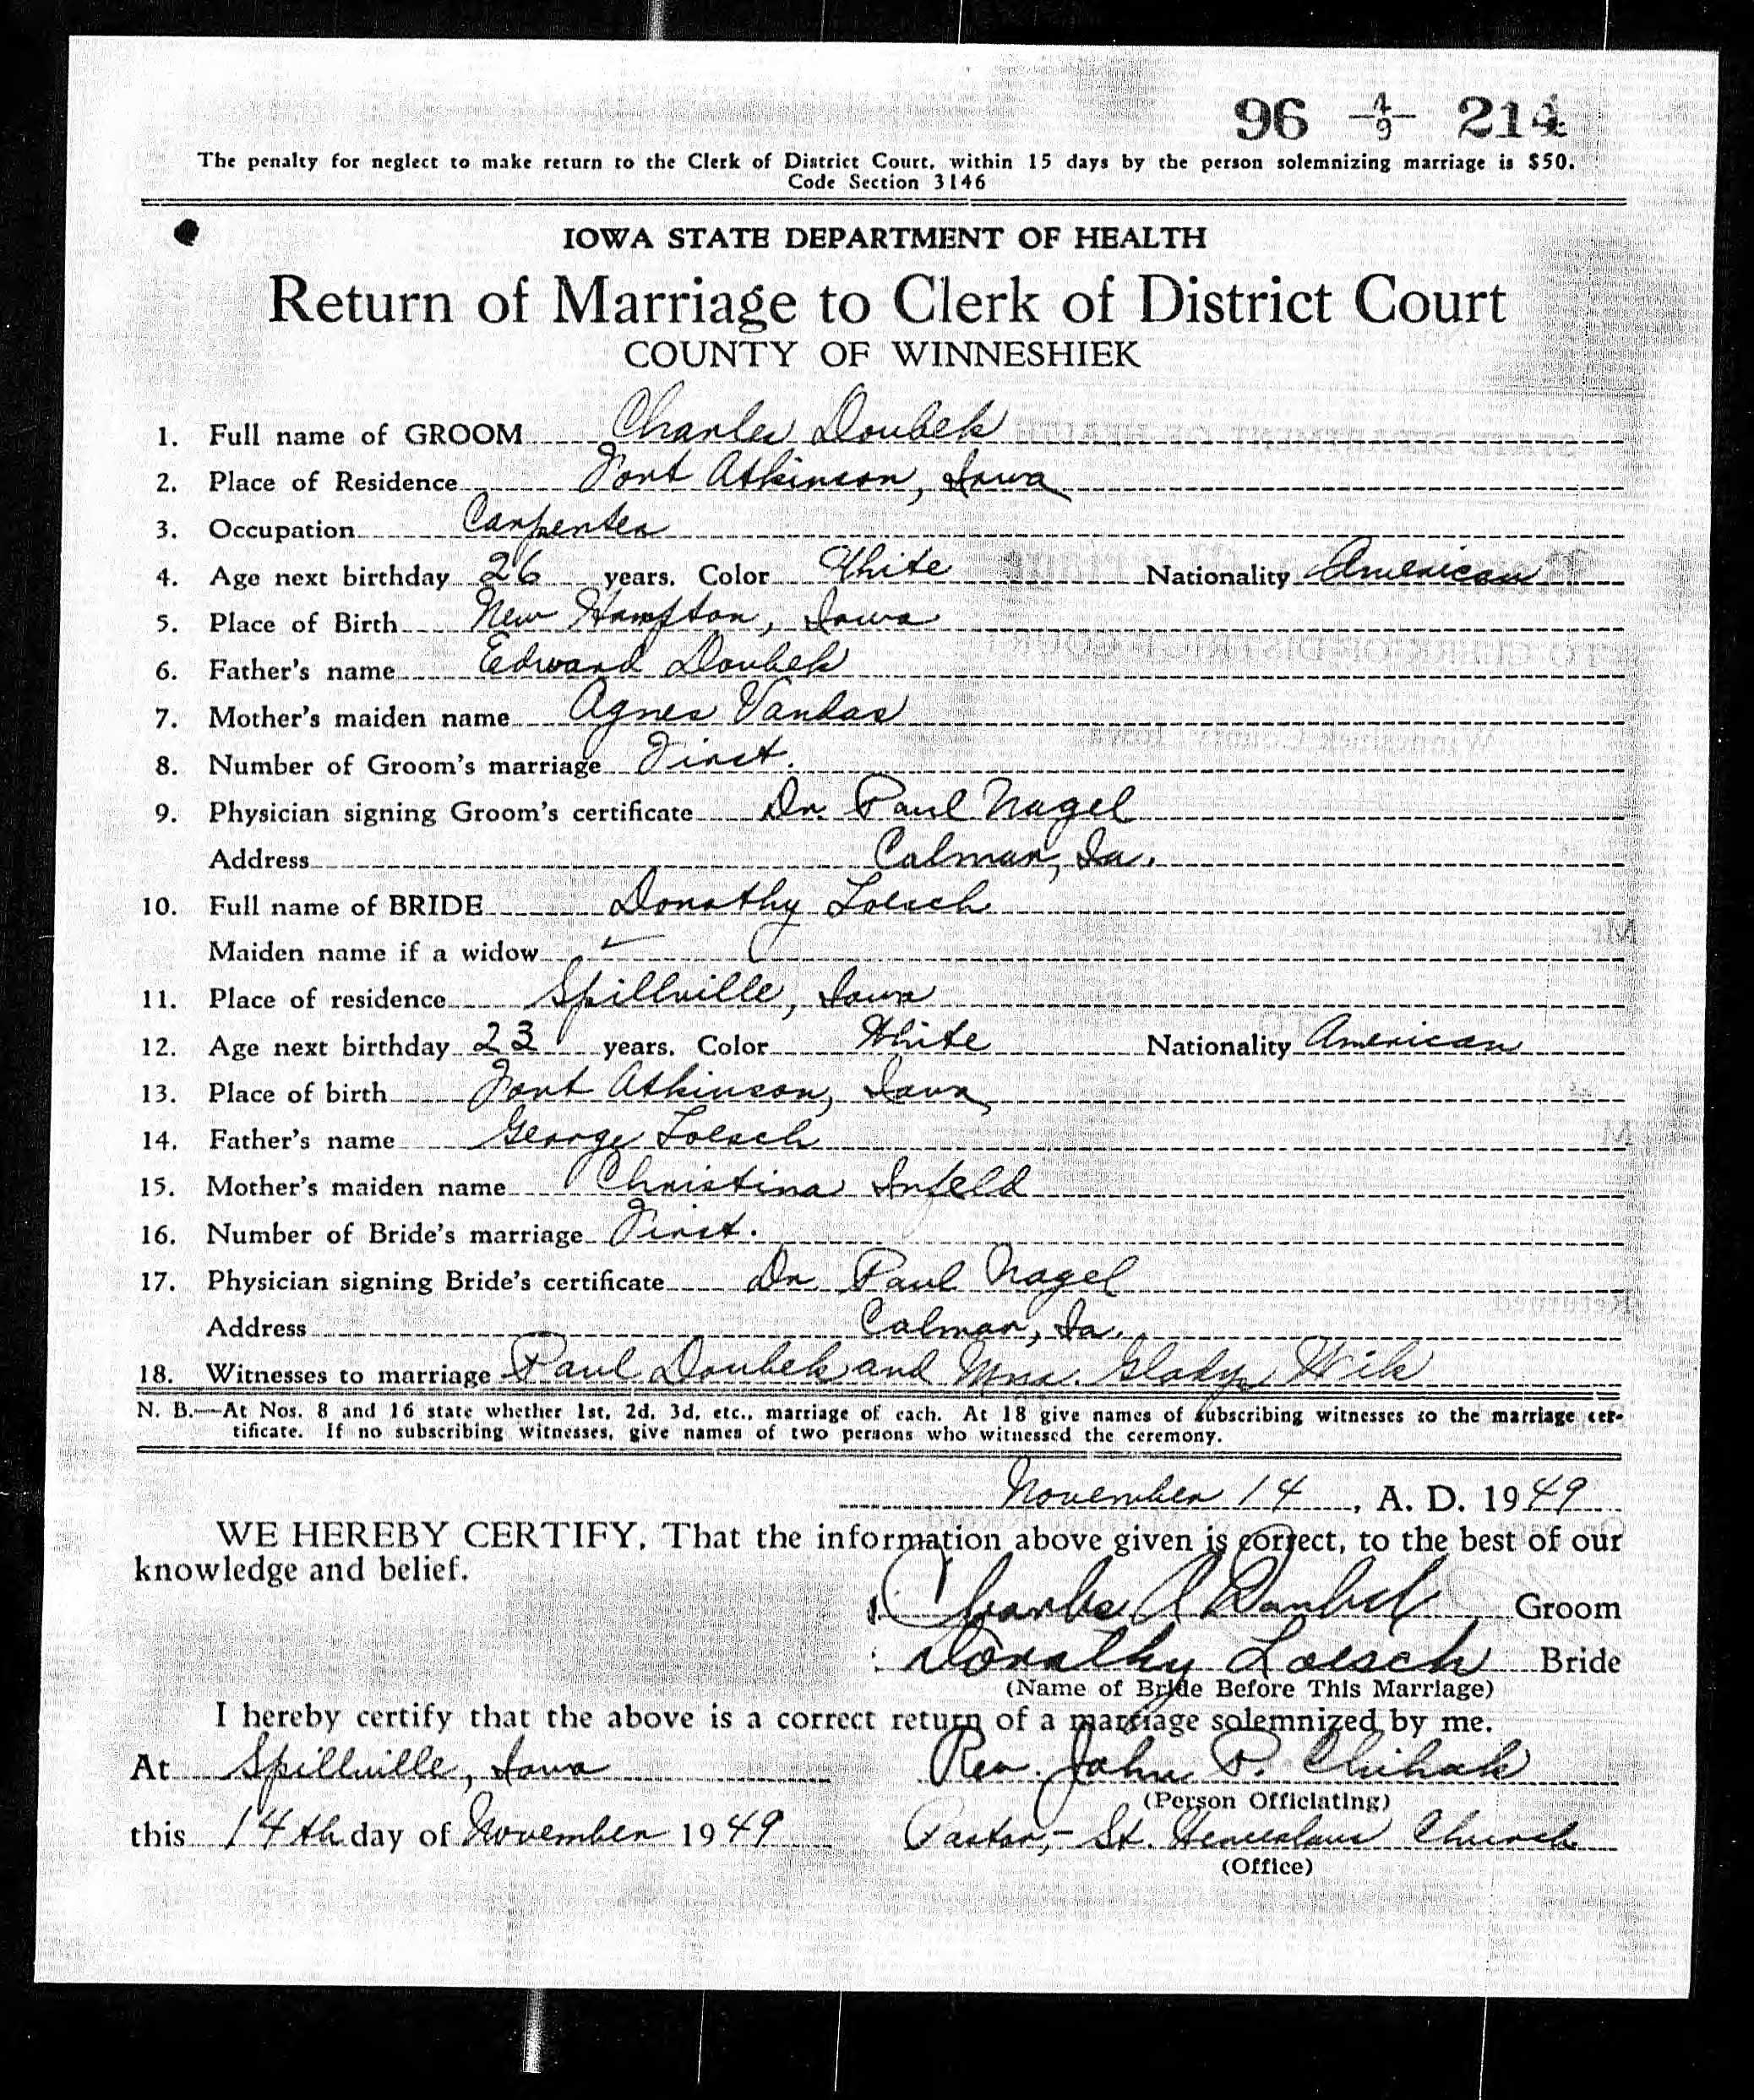 96 -4/9- 214
The penalty for neglect to make return to the Clerk of District Court, within 15 days by the person solemnizing marriage is $50.
Code Section 3146
IOWA STATE DEPARTMENT OF HEALTH
Return of Marriage to Clerk of District Court
COUNTY OF WINNESHIEK
1. Full name of GROOM Charles Doubek
2. Place of Residence Fort Atkinson, Iowa
3. Occupation Carpenter
4. Age next birthday 26 years. Color White Nationality American
5. Place of Birth New Hampton, Iowa
6. Father's name Edward Doubek
7. Mother's maiden name Agnes Vandas
8. Number of Groom's marriage First.
9. Physician signing Groom's certificate Dr. Paul Nagel
Address Calmar, Ia.
10. Full name of BRIDE Dorothy Loesch
Maiden name if a widow
11. Place of residence Spillville, Iowa
12. Age next birthday 23 years. Color White Nationality American
13. Place of birth Fort Atkinson, Iowa
14. Father's name George Loesch
15. Mother's maiden name Christina Infeld
16. Number of Bride's marriage First.
17. Physician signing Bride's certificate Dr. Paul Nagel
Address Calmar, Ia.
18. Witnesses to marriage Paul Doubek and Mrs. Gladys Wilk
N. B.—At Nos. 8 and 16 state whether 1st, 2d, 3d, etc., marriage of each. At 18 give names of subscribing witnesses to the marriage cer-
tificate. If no subscribing witnesses, give names of two persons who witnessed the ceremony.
November 14, A. D. 1949
WE HEREBY CERTIFY, That the information above given is correct, to the best of our
knowledge and belief.
Charles A Doubek Groom
Dorothy Loesch Bride
(Name of Bride Before This Marriage)
I hereby certify that the above is a correct return of a marriage solemnized by me.
At Spillville, Iowa Rev. John P. Chihak
(Person Officiating)
this 14th day of November 1949 Pastor,- St. Wenceslaus Church
(Office)